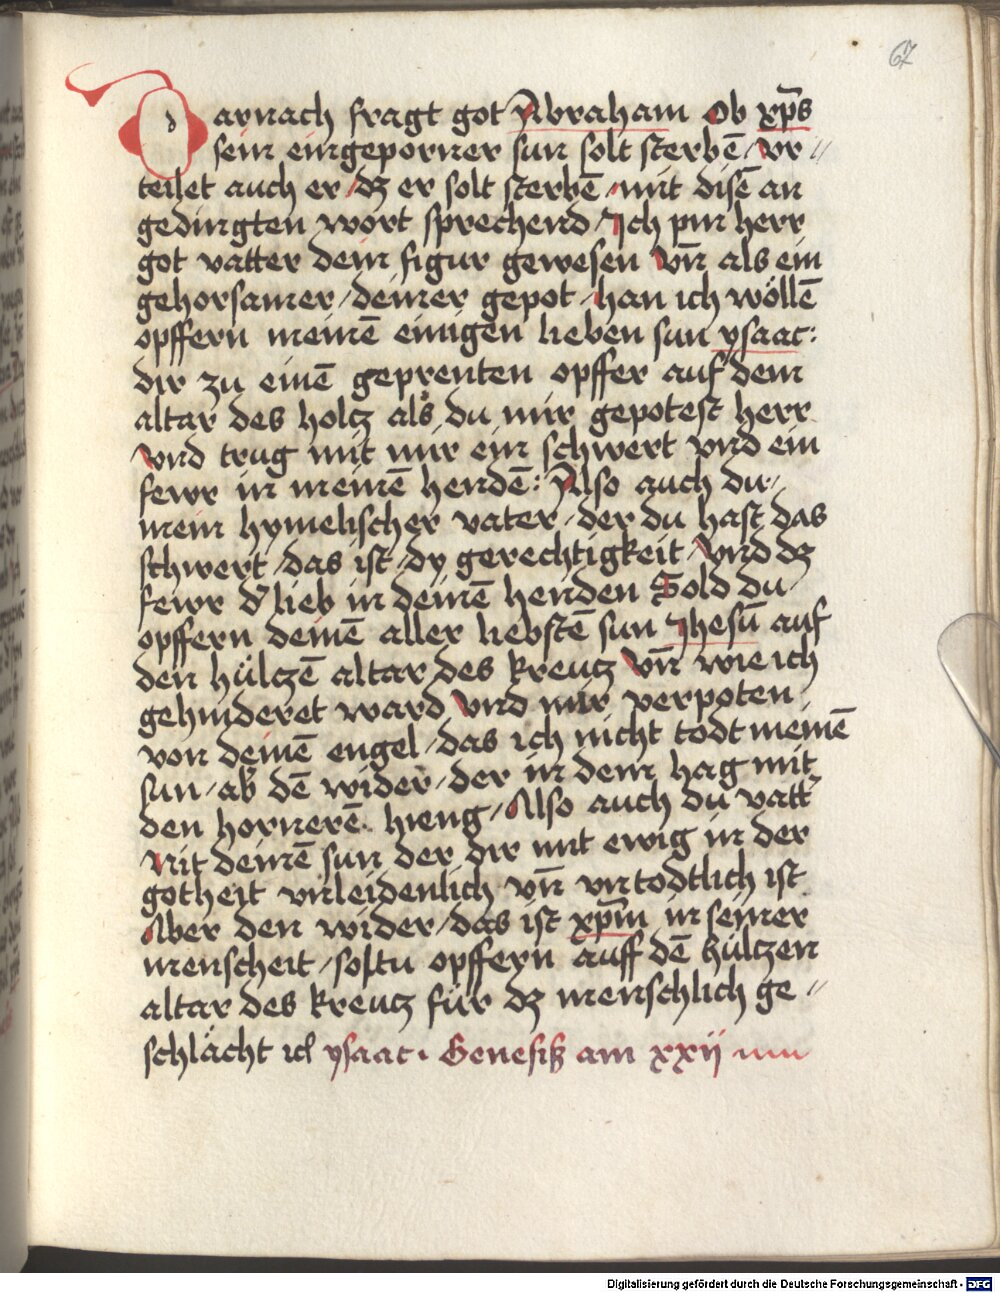 67
Darnach fragt got Abraham Ob xp̄s
sein eingeporner sun solt sterbē / vr //
teilet auch er / dz er solt sterbē / mit disē an
gedingten wort sprechend / Ich pin herr
got vatter dein figur gewesen Vn̄ als ein
gehorsamer / deiner gepot / han ich wöllē
opffern meinē einigen lieben sun ysaac:
dir zu einē geprenten opffer auf dem
altar des holtz als du mir gepotest herr
Vnd trug mit mir ein schwert vnd ein
fewr in meinē hendē: Also auch du /
mein hymelischer vater / der du hast das
schwert / das ist / dy gerechtigkeit / Vnd dz
fewr d' lieb in deinē henden Sold du /
opffern deinē aller liebstē sun Jhesū auf
den hültzē altar des kreutz Vn̄ wie ich
gehinderet ward Vnd mir verpoten /
von deinē engel / das ich nicht todt meinē
sun / ab' dē wider / der in dem hag mit
den hornerē hieng / Also auch du vatt'
Nit deinē sun der dir mit ewig in der
gotheit vnleidenlich vn̄ vntodtlich ist
Aber den wider / das ist xp̄m in seiner
menscheit / soltu opffern auff dē hültzen
altar des kreutz für dz menschlich ge //
schlächt icl ysaac. Genesis am xxij
Digitalisierung gefördert durch die Deutsche Forschungsgemeinschaft - DFG